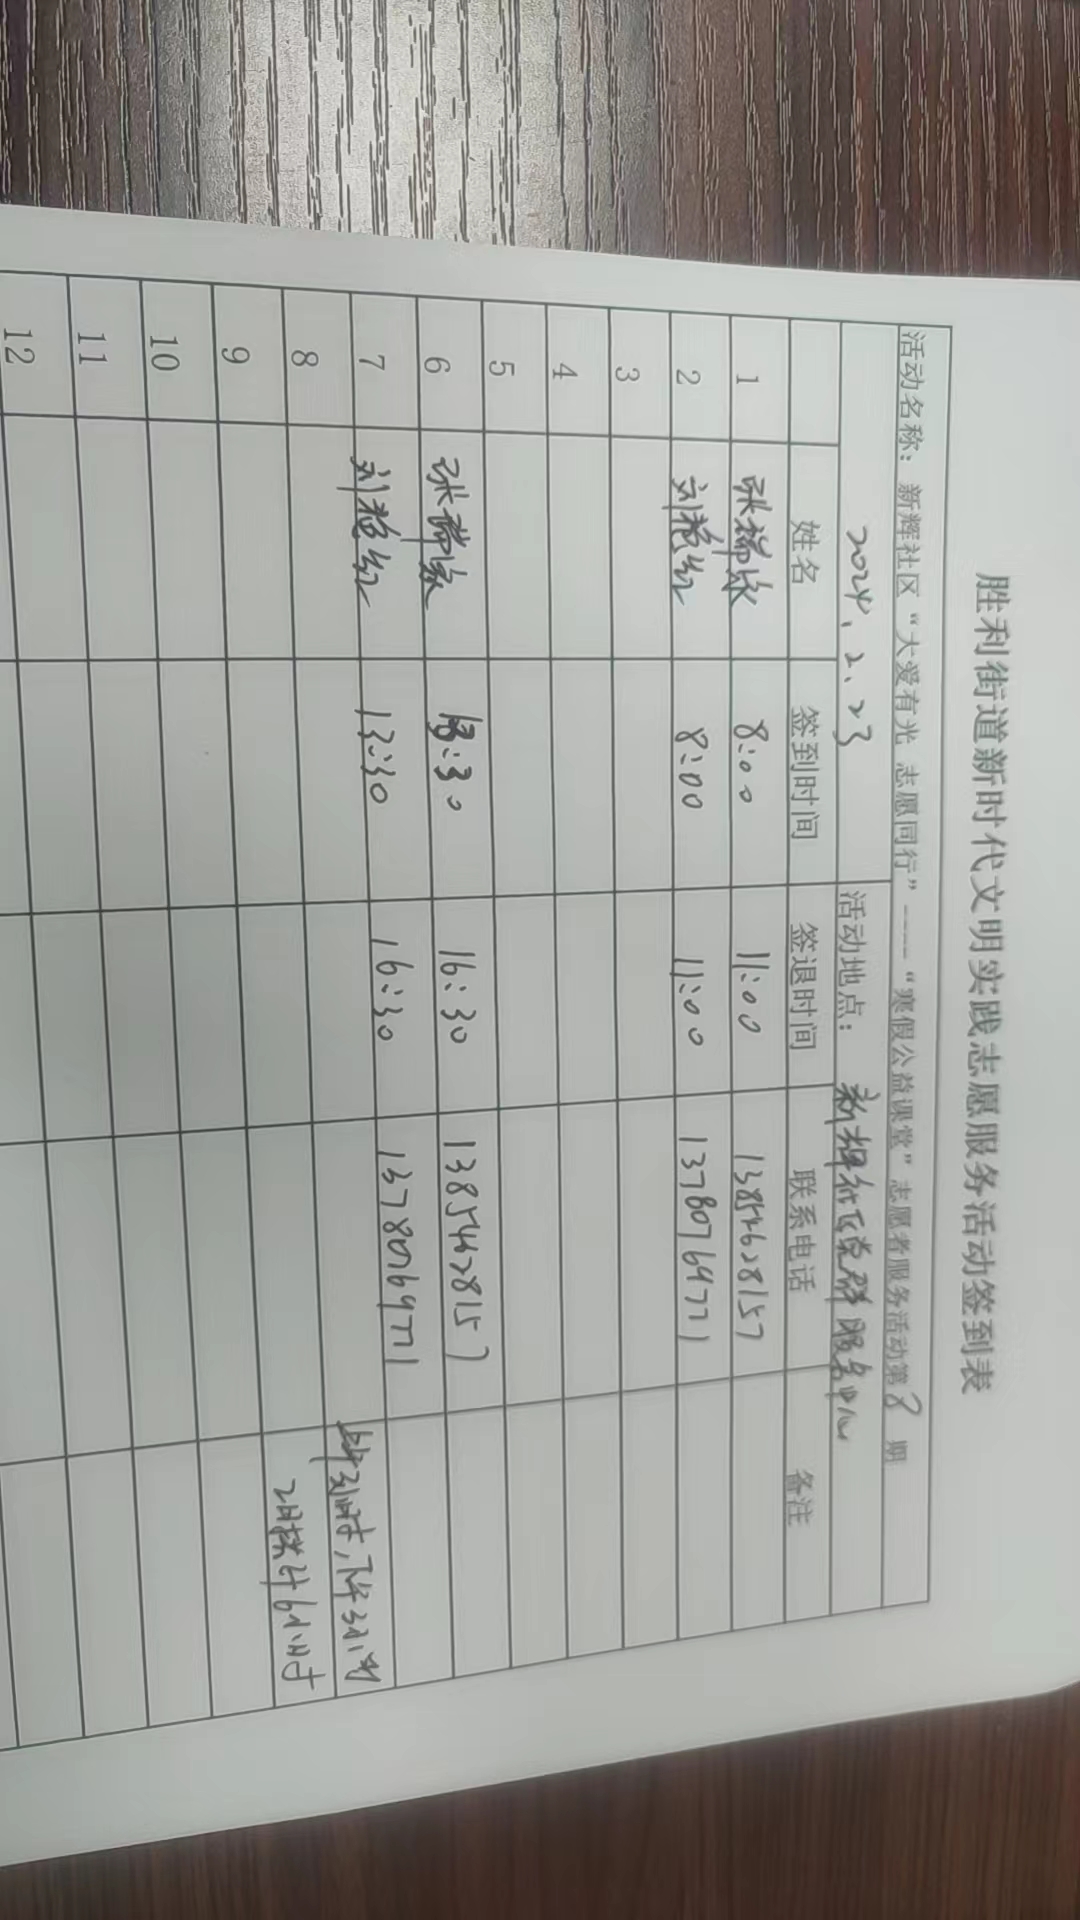 胜利街道新时代文明实践志愿服务活动签到表
活动名称：新辉社区“大爱有光 志愿同行”----“寒假公益课堂”志愿者服务活动第8期
2024.2.23 活动地点：新辉社区党群服务中心
姓名 签到时间 签退时间 联系电话 备注
1 张瑞 8:00 11:00 13854628157
2 刘艳红 8:00 11:00 1378076971
3
4
5
6 张瑞 13:30 16:30 13854628157
7 刘艳红 13:30 16:30 1378076971
8 3小时，下午3小时
9 共计6小时
10
11
12